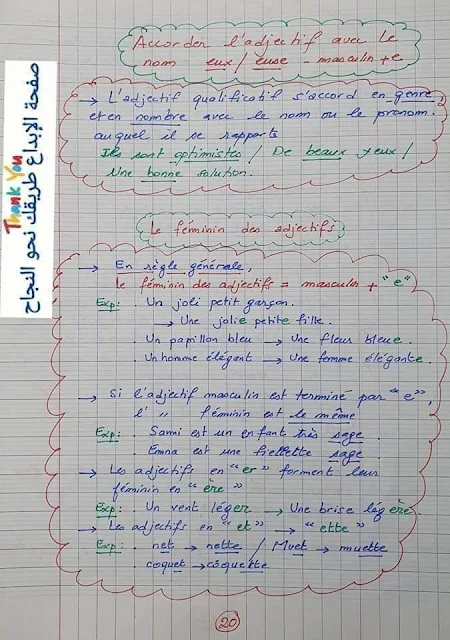 Accorder l'adjectif avec le
nom eux/euse - masculin +e
→ L'adjectif qualificatif s'accord en genre
et en nombre avec le nom ou le pronom
auquel il se rapporte
Ils sont optimistes / De beaux yeux /
Une bonne solution.
Thank You
صفحة الإبداع طريقك نحو النجاح
Le féminin des adjectifs
→ En règle générale,
le féminin des adjectifs = masculin + "e"
Exp: . Un joli petit garçon.
→ Une jolie petite fille.
. Un papillon bleu → Une fleur bleue.
. Un homme élégant → Une femme élégante.
→ Si l'adjectif masculin est terminé par "e",
l' " féminin est le même
Exp: . Sami est un enfant très sage.
. Emna est une fiellette sage.
→ Les adjectifs en "er" forment leur
féminin en "ère"
Exp: . Un vent léger → Une brise légère.
→ Les adjectifs en "et" → "ette"
Exp: . net → nette / Muet → muette
. coquet → coquette
20